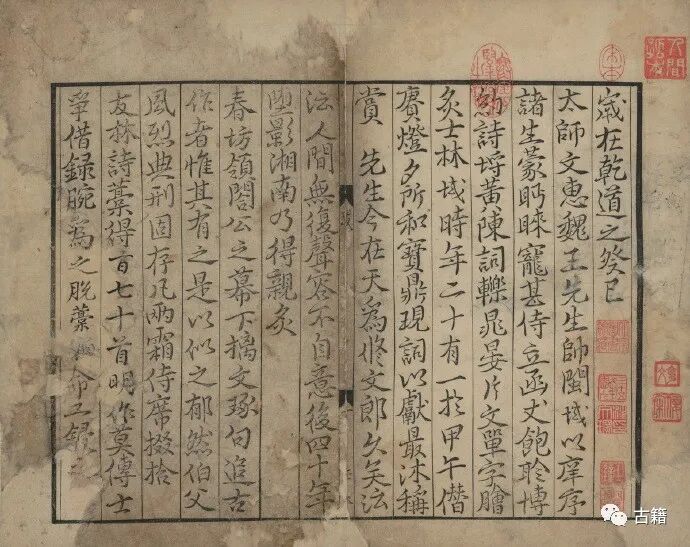 人間孤本
歲在乾道之癸巳
太師文惠魏王先生帥閩域以庠序
諸生蒙眄睞寵甚侍立函丈飽聆博
約詩埒黃陳詞轢晁晏片文單字膾
炙士林域時年二十有一於甲午僭
賡燈夕所和寶鼎現詞以獻最沐稱
賞 先生今在天為修文郎久矣
人間無復聲容不自意後四十年
影湘南乃得親炙
春坊領閤公之幕下摛文琢句追古
作者惟其有之是以似之郁然伯父
風烈典刑固存凡兩霜侍席掇拾
友林詩藁得百七十首明作莫傳士
爭借錄腕為之脫藁命工
古籍